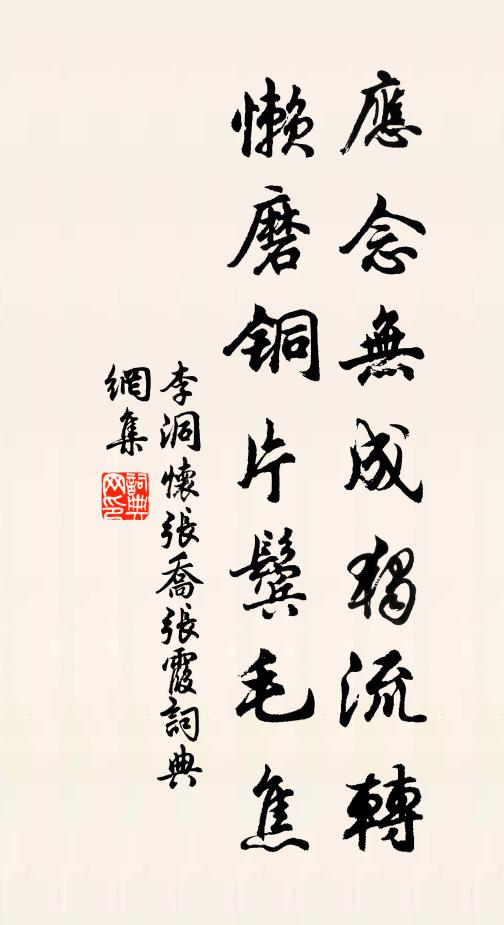 應念無成獨流轉
懶磨銅片鬢毛焦
李洞懷張喬張霞詞典
網集
詞典
网印